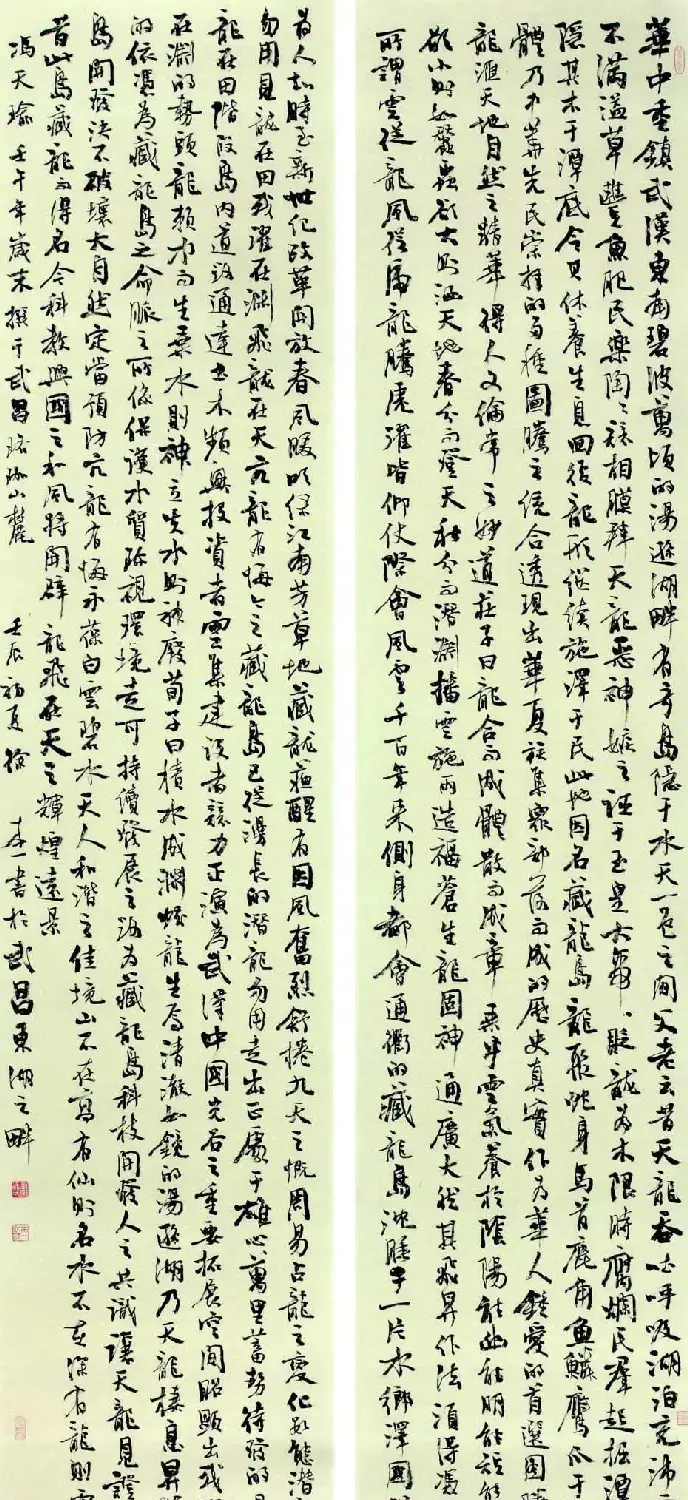 華中重鎮武漢東南碧波萬頃的湯遜湖畔有奇島隱于水天一色之間父老云昔天龍吞吐呼吸湖泊充沛
不滿溢草豐魚肥民樂陶々詠相膜拜天龍惡神嫉之誣于玉皇大帝貶龍為木限時腐爛民羣起掘潭
隱其木于潭底令其休養生息回復龍形從續施澤于民此地因名藏龍島龍聚蛇身馬首鹿角魚鱗鷹爪于
體乃中華先民崇拜的多種圖騰之綜合透現出華夏族集衆部落而成的歷史真實作為華人鍾愛的首選圖騰
龍滙天地自然之精華得人文倫常之妙道莊子曰龍合而成體散而成章乘乎雲氣養於陰陽能幽能明能短能
欲小則如蠶蟲欲大則涵天地春分而登天秋分而潛淵播雲施雨造福蒼生龍固神通廣大然其飛昇作法須得憑
所謂雲從龍風從虎龍騰虎躍皆仰仗際會風雲千百年來側身都會通衢的藏龍島沈睡于一片水鄉澤國
為人知時至新世纪改革開放春風暖吹綠江南芳草地藏龍蘇醒有因風奮烈舒捲九天之慨周易占龍之變化如能潛
勿用見龍在田或濯在淵飛龍在天亢龍有悔今之藏龍島已從漫長的潛龍勿用走出正處于雄心萬里蓄勢待發的
龍在田階段島内道路通達土木頻興投資者雲集建設者競力正演為武漢中國光谷之重要拓展空間昭顯出或
在淵的勢頭龍賴水而生乘水則神立失水則神廢荀子曰積水成淵蛟龍生焉清澈如鏡的湯遜湖乃天龍棲息昇
的依憑為藏龍島之命脈之所係保護水質珍視環境走可持續發展之路為藏龍島科技開發人之共識讓天龍見證
島開發決不破壞大自然定當預防亢龍有悔永葆白雲碧水天人和諧之佳境山不在高有仙則名水不在深有龍則
昔此島藏龍而得名今科教興國之和風將開辟龍飛在天之輝煌遠景
馮天瑜壬午年歲末撰于武昌珞珈山麓 壬辰初夏徐本一書於武昌東湖之畔